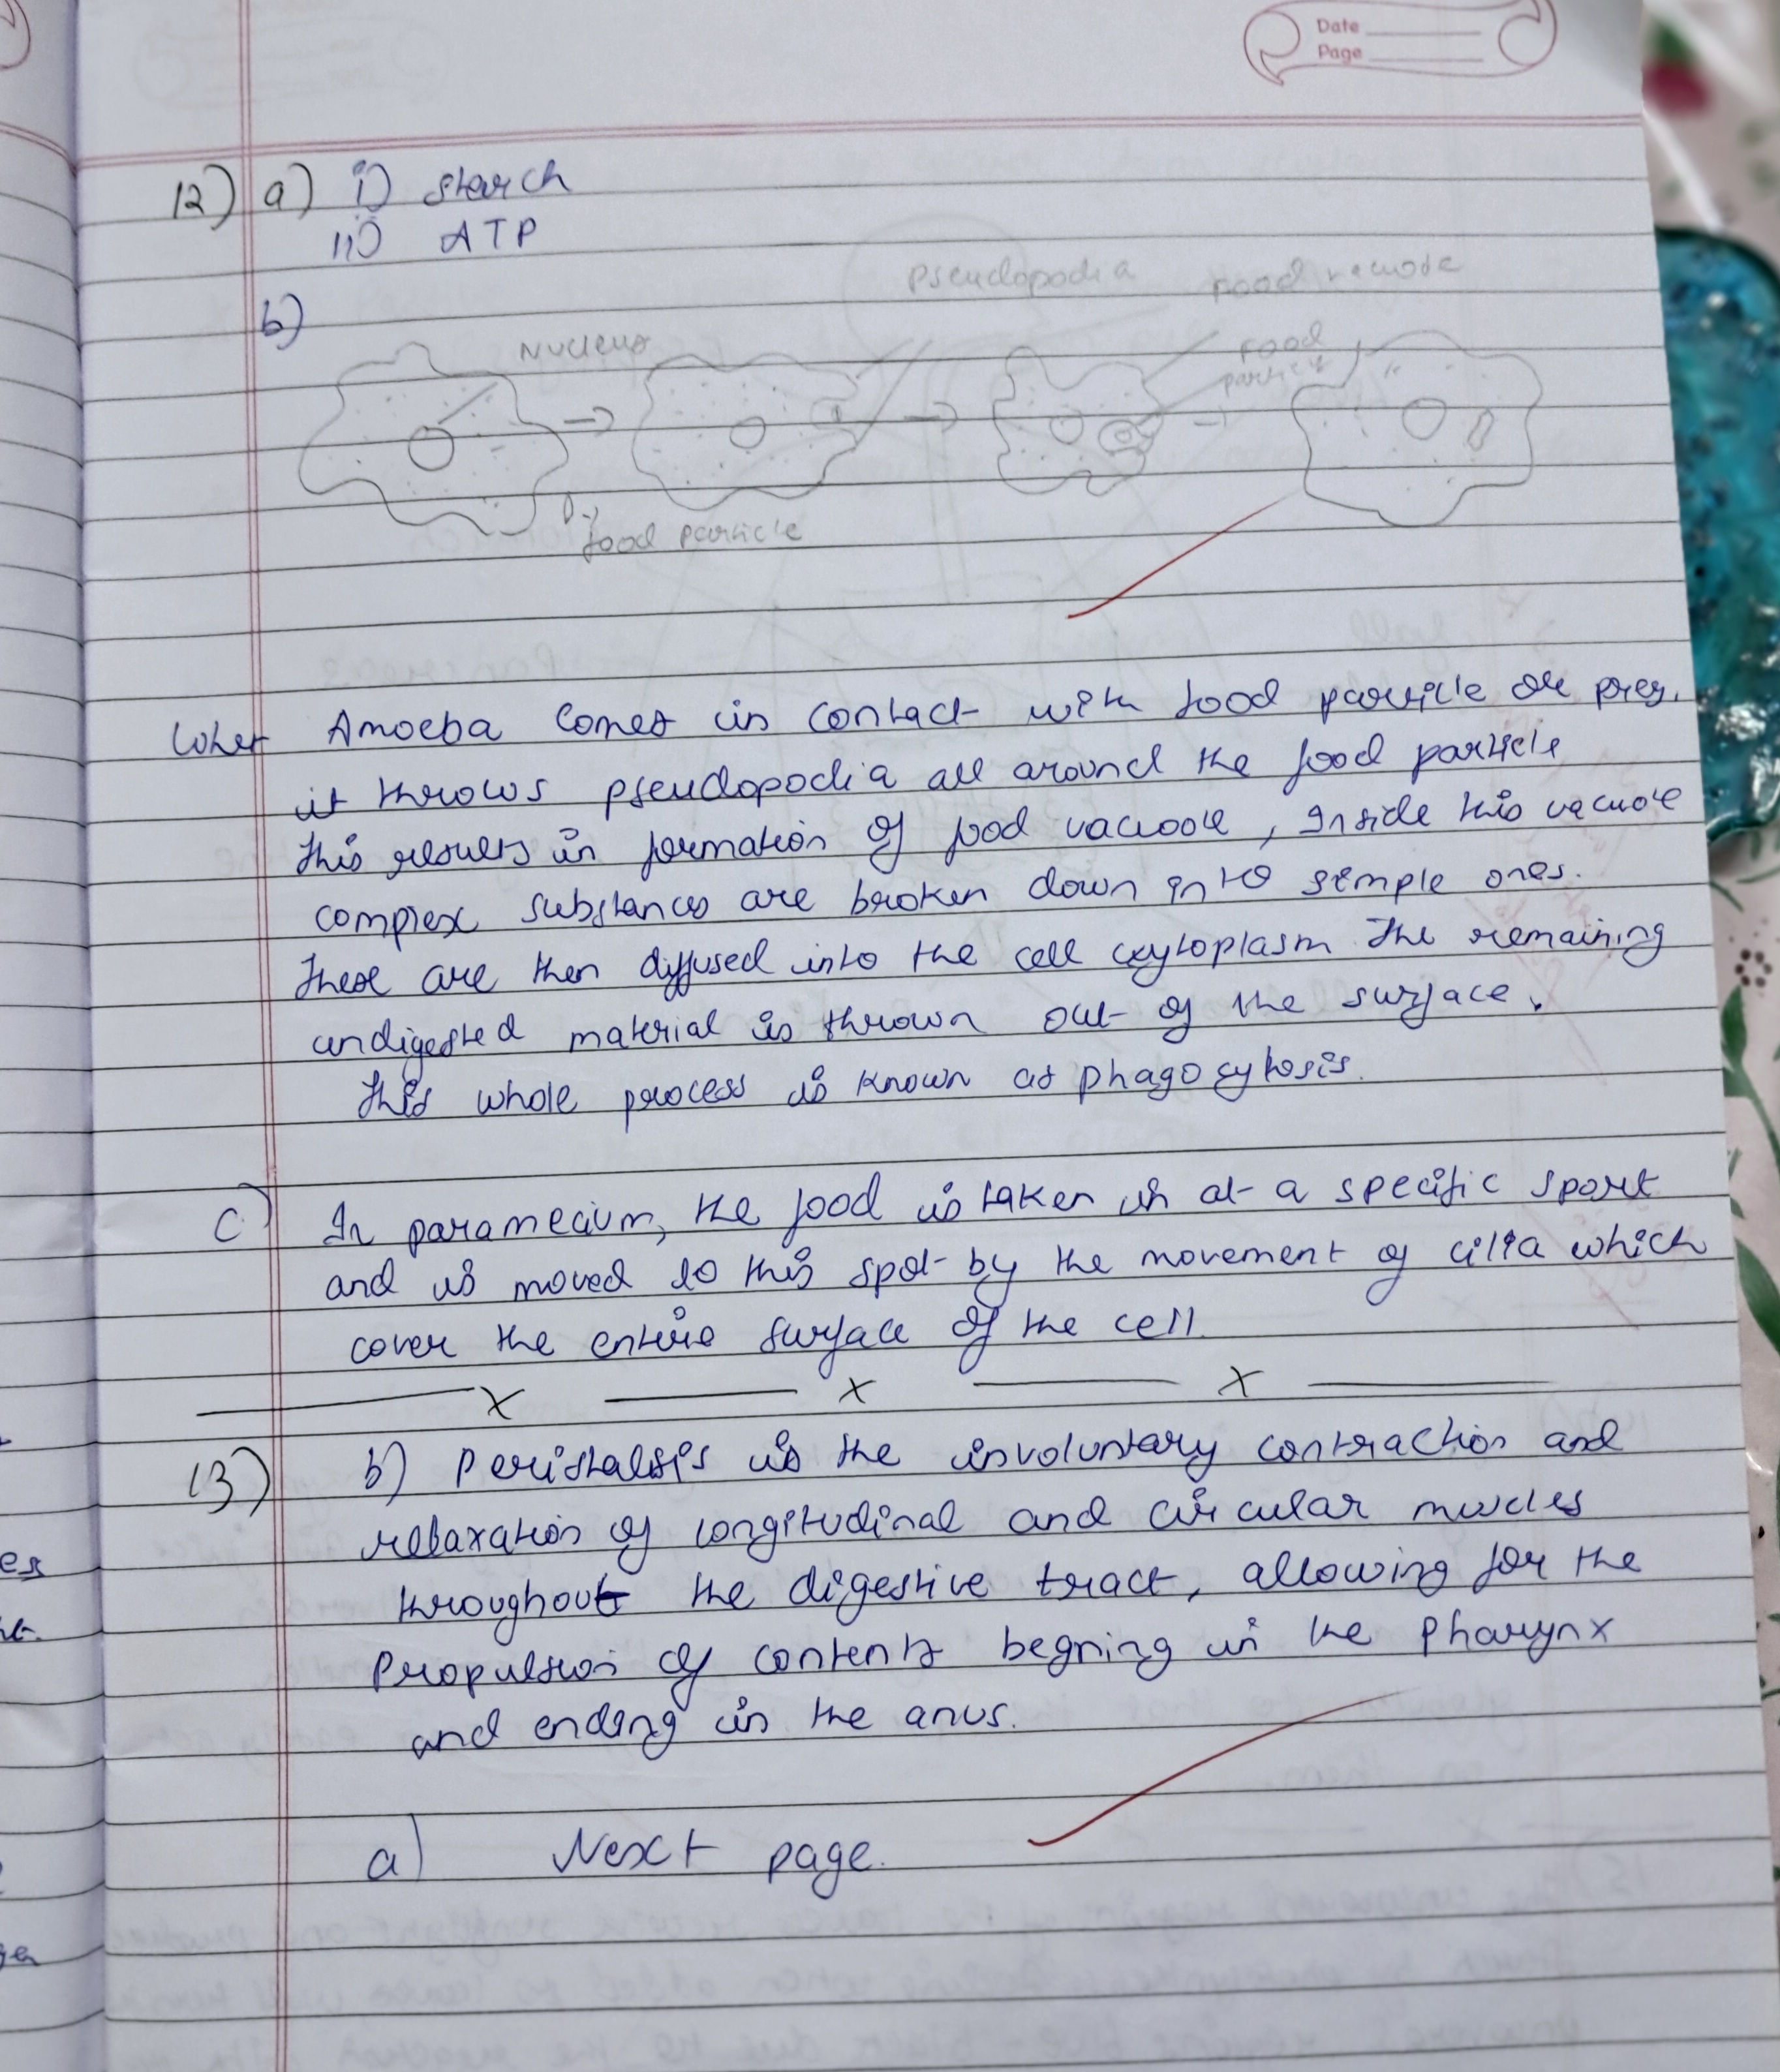 Date
Page
12) a) i) starch
ii) ATP
Pseudopodia
b)
Nucleus
food
particle
food particle
When Amoeba comes in contact with food particle or prey.
it throws pseudopodia all around the food particle
This results in formation of food vacuole, Inside this vacuole
complex substances are broken down into simple ones.
These are then diffused into the cell cytoplasm The remaining
undigested material is thrown out of the surface.
This whole process is known as phagocytosis.
C) In paramecium, the food is taken in at a specific sport
and is moved to this spot by the movement of cilia which
cover the entire surface of the cell.
x x x
13) b) Peristalsis is the involuntary contraction and
relaxation of longitudinal and circular muscles
throughout the digestive tract, allowing for the
Propulsion of contents begning in the Pharynx
and ending in the anus.
a) Next page.